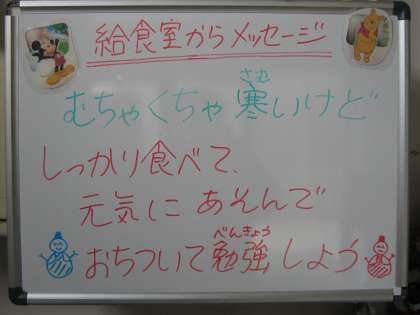 給食室からメッセージ
むちゃくちゃ寒いけど
さむ
しっかり食べて、
元気にあそんで
おちついて勉強しよう
べんきょう